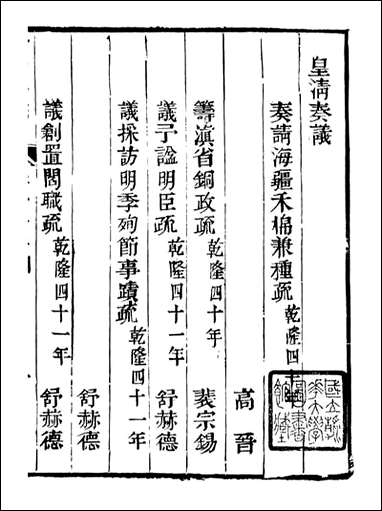 皇淸奏議
奏請海疆禾棉兼種疏 乾隆四十
高晉
籌滇省銅政疏 乾隆四十年 裴宗錫
議予諡明臣疏 乾隆四十一年 舒赫德
議採訪明季殉節事蹟疏 乾隆四十一年
舒赫德
議創置閣職疏 乾隆四十一年 舒赫德